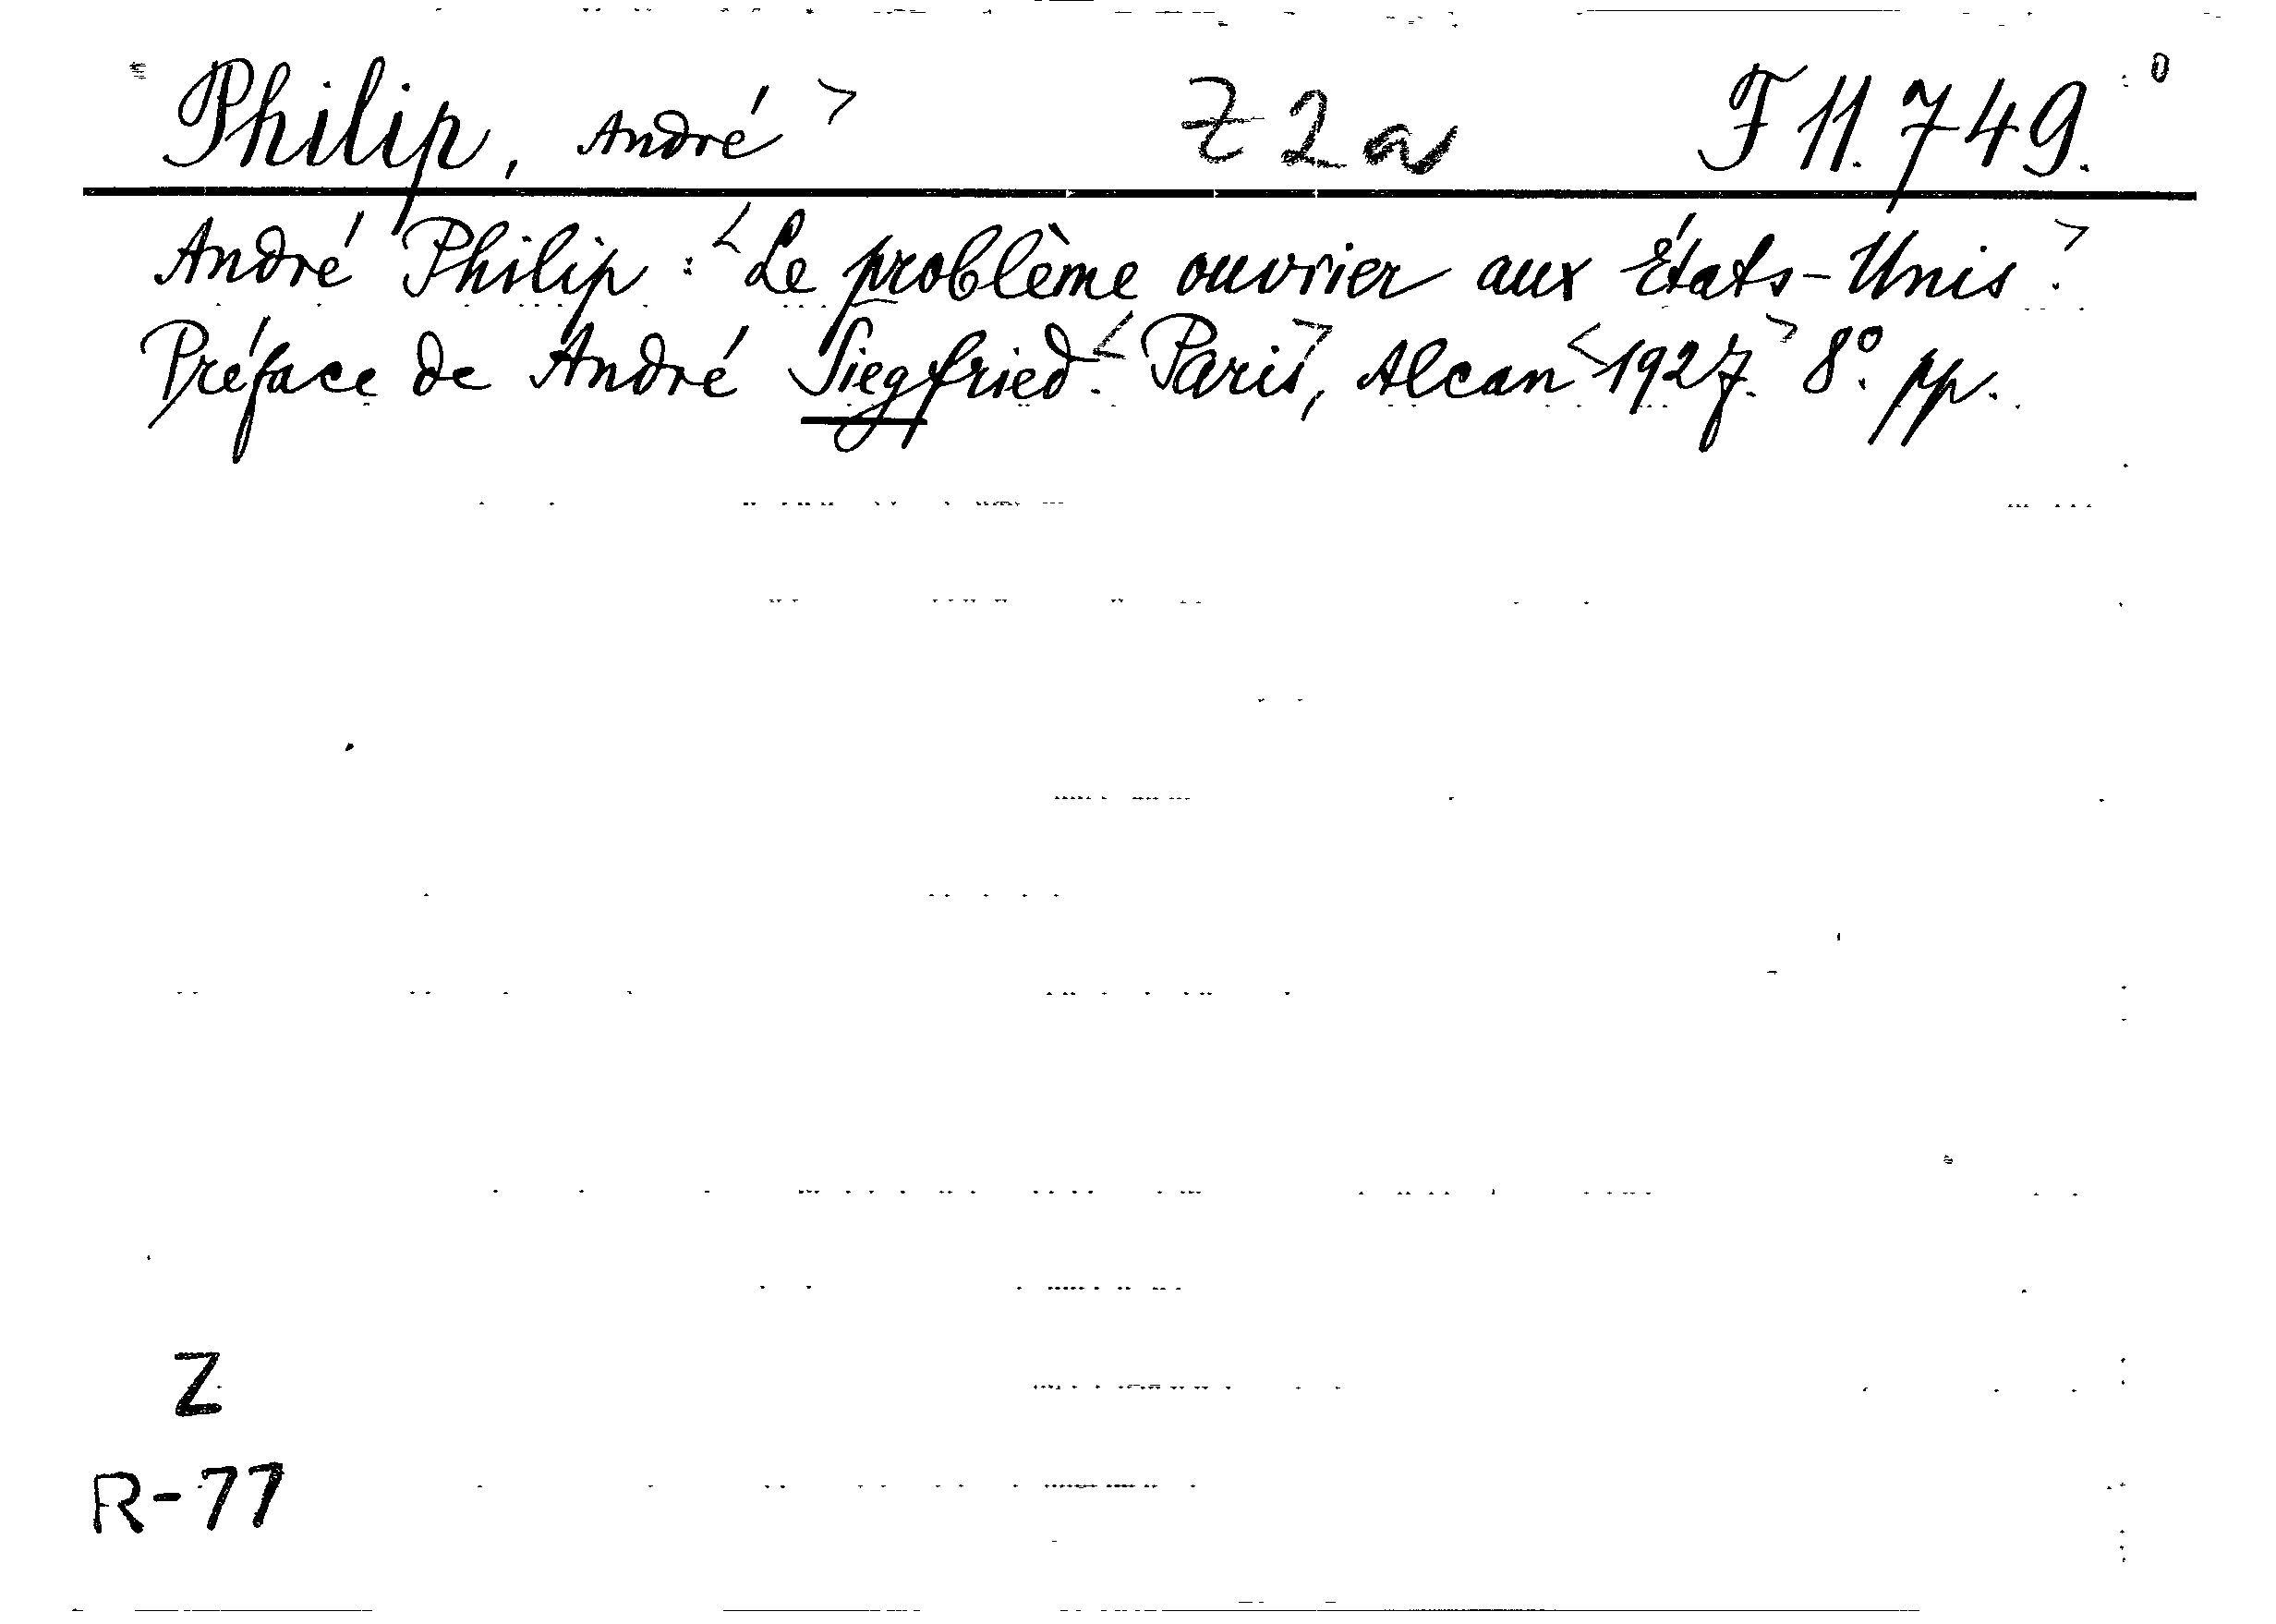 Philip, André > Z 2 a F 11.749.
André Philip: <Le problème ouvrier aux États-Unis.>
Préface de André Siegfried. <Paris>, Alcan <1927.> 8°. pp.
Z
R-77